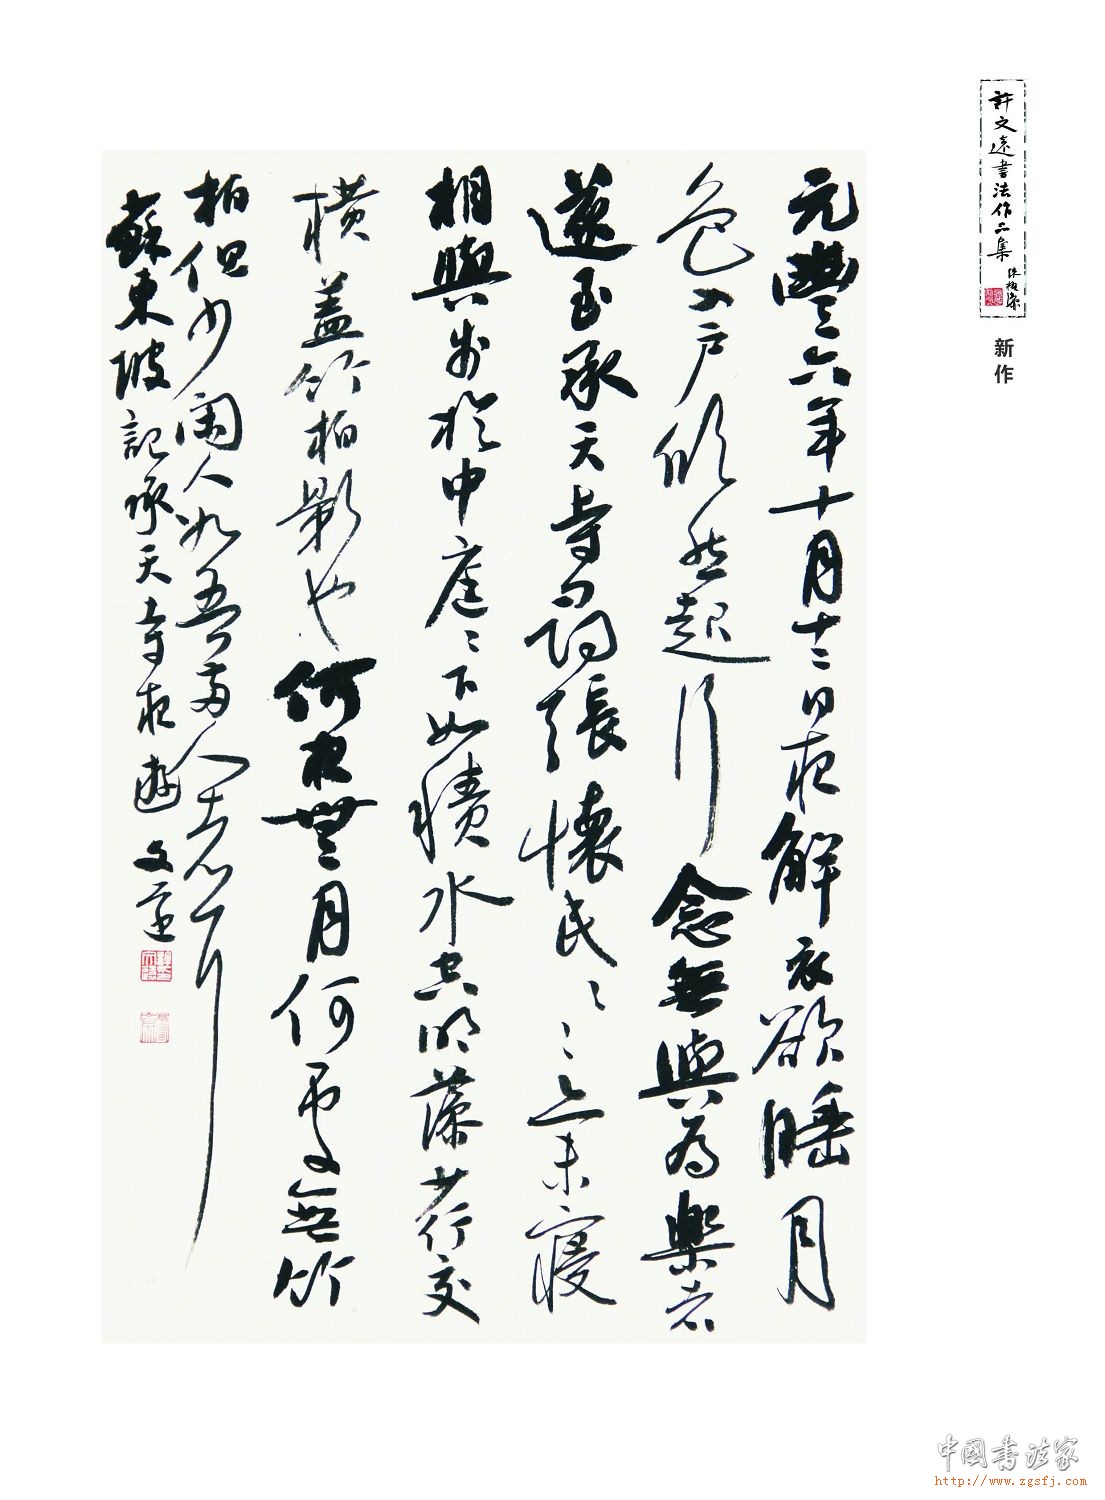 許文遠書法作品集
陈振濂
新作
元豐六年十月十二日夜解衣欲睡月
色入户欣然起行念無與為樂者
遂至承天寺尋張懷民〻〻亦未寢
相與步於中庭〻下如積水空明藻荇交
橫蓋竹柏影也何夜無月何處無竹
柏但少閑人如吾兩人者耳
蘇東坡記承天寺夜遊 文遠
中國書法家
http://www.zgsfj.com